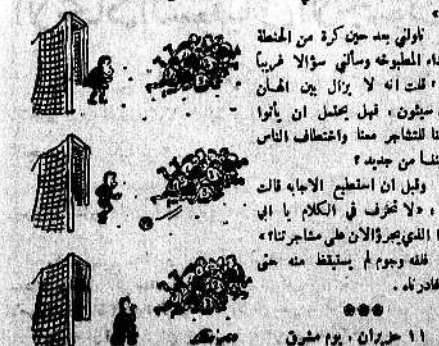 ناولني بعد حين كرة من الحنطة
المطبوخه وسألني سؤالا غريباً
« قلت انه لا يزال بين الهان
سيئون ، فهل يحتمل ان يأتوا
للتشاجر معنا واختطاف الناس
من جديد ؟
وقبل ان استطيع الاجابه قالت
، « لا تخرف في الكلام يا ابي
الذي يجرؤ الان على مشاجرتنا ؟ »
فلفه وجوم لم يستيقظ منه حتى
غادرناه .
١١ حزيران ، يوم مشرق